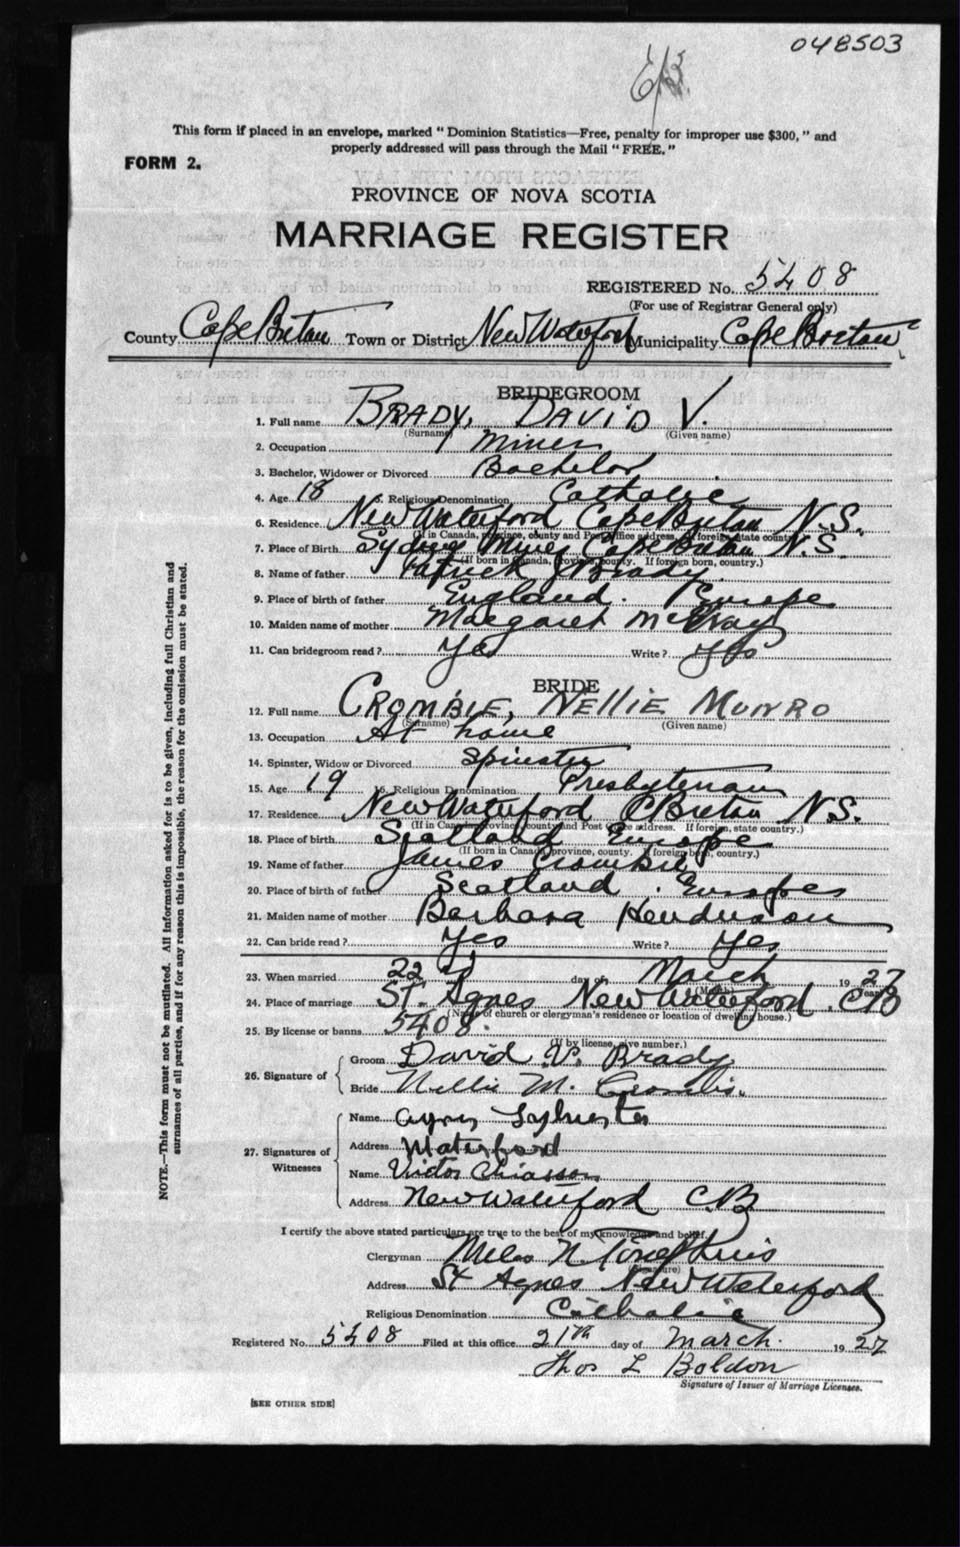 048503
This form if placed in an envelope, marked "Dominion Statistics—Free, penalty for improper use $300," and
properly addressed will pass through the Mail "FREE."
FORM 2.
PROVINCE OF NOVA SCOTIA
MARRIAGE REGISTER
REGISTERED No. 5408
(For use of Registrar General only)
County Cape Breton Town or District New Waterford Municipality Cape Breton
BRIDEGROOM
1. Full name BRADY, DAVID V.
(Surname) (Given name)
2. Occupation Miner
3. Bachelor, Widower or Divorced Bachelor
4. Age 18 5. Religious Denomination Catholic
6. Residence New Waterford Cape Breton N.S.
(If in Canada, province, county and Post Office address. If foreign, state country)
7. Place of Birth Sydney Mines Cape Breton N.S.
(If born in Canada, province, county. If foreign born, country.)
8. Name of father Patrick J Brady
9. Place of birth of father England. Europe
10. Maiden name of mother Margaret
11. Can bridegroom read? Yes Write? Yes
BRIDE
12. Full name CROMBIE, NELLIE MUNRO
(Surname) (Given name)
13. Occupation At home
14. Spinster, Widow or Divorced Spinster
15. Age 19 16. Religious Denomination Presbyterian
17. Residence New Waterford C Breton N.S.
(If in Canada, province, county and Post Office address. If foreign, state country.)
18. Place of birth Scotland Europe
(If born in Canada, province, county. If foreign born, country.)
19. Name of father James Crombie
20. Place of birth of father Scotland. Europe
21. Maiden name of mother Barbara Henderson
22. Can bride read? Yes Write? Yes
23. When married 22nd day of March 1927
(Month) (Year)
24. Place of marriage St. Agnes New Waterford. C B
(Name of church or clergyman's residence or location of dwelling house.)
25. By license or banns 5408.
(If by license, give number.)
26. Signature of
Groom David V. Brady
Bride Nellie M. Crombie.
27. Signatures of Witnesses
Name Sylvester
Address Waterford
Name Victor Chiasson
Address New Waterford C.B
I certify the above stated particulars are true to the best of my knowledge and belief.
Clergyman Miles N Tompkins
(Signature)
Address St Agnes New Waterford
Religious Denomination Catholic
Registered No. 5408 Filed at this office 21th day of March. 1927
Thos L Boldon
Signature of Issuer of Marriage Licenses.
[SEE OTHER SIDE]
NOTE.—This form must not be mutilated. All information asked for is to be given, including full Christian and
surnames of all parties, and if for any reason this is impossible, the reason for the omission must be stated.